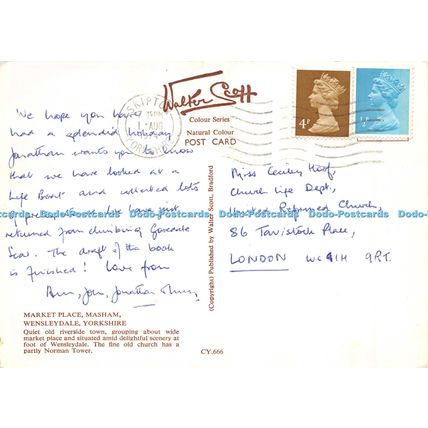 SKIPTON
AUG
YORKSHIRE
Walter Scott
Colour Series
Natural Colour
POST CARD
4P
½P
We hope you have
had a splendid holiday
Jonathan wants you to know
that we have looked at a
Life Boat and collected lots
of We have just
returned from climbing Goredale
Scar. The draft of the book
is finished! Love from
Jon, Jonathan
MARKET PLACE, MASHAM,
WENSLEYDALE, YORKSHIRE
Quiet old riverside town, grouping about wide
market place and situated amid delightful scenery at
foot of Wensleydale. The fine old church has a
partly Norman Tower.
(Copyright) Published by Walter Scott, Bradford
CY.666
Miss Cecily
Church Life Dept,
United Reformed Church,
86 Tavistock Place,
LONDON WC1H 9RT.
Dodo-Postcards Dodo-Postcards Dodo-Postcards Dodo-Postcards Dodo-Postcards